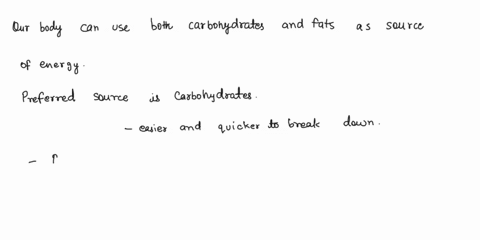 Our body can use both carbohydrates and fats as source
of energy.
Preferred source is Carbohydrates.
- easier and quicker to break down.
-